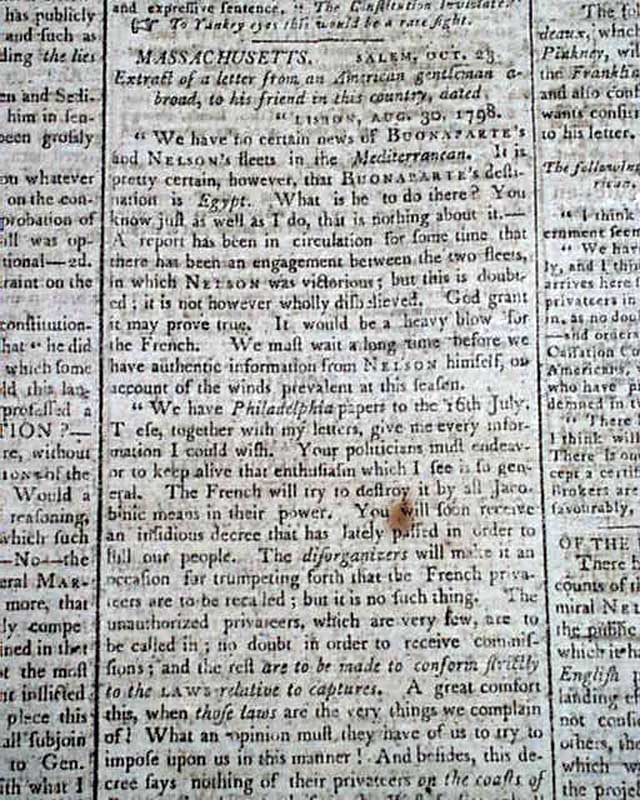 has publicly
and ſuch as
ding the lies
en and Sedi-
him in ſen-
been groſsly
ou whatever
on the con-
probation of
ill was op-
tional—2d.
raint on the
conſtitution-
hat " he did
which ſome
ld this lan
profeſſed a
TION ?—
re, without
of the
Would a
reaſoning,
which ſuch
—No—the
eral MAR-
more, that
ly compe
ined in that
t the moſt
nt inflicted
place this
all ſubjoin
to Gen.
ith what I
and expreſſive ſentence, " The Conſtitution Inviolate."
☞ To Yankey eyes this would be a rare ſight.
MASSACHUSETTS. SALEM, OCT. 23.
Extract of a letter from an American gentleman a-
broad, to his friend in this country, dated
" LISBON, AUG. 30, 1798.
" We have no certain news of BUONAPARTE's
and NELSON's fleets in the Mediterranean. It is
pretty certain, however, that BUONAPARTE's deſti-
nation is Egypt. What is he to do there? You
know juſt as well as I do, that is nothing about it.—
A report has been in circulation for ſome time that
there has been an engagement between the two fleets,
in which NELSON was victorious; but this is doubt-
ed; it is not however wholly diſbelieved. God grant
it may prove true. It would be a heavy blow for
the French. We muſt wait a long time before we
have authentic information from NELSON himſelf, on
account of the winds prevalent at this ſeaſen.
" We have Philadelphia papers to the 16th July.
Teſe, together with my letters, give me every infor-
mation I could wiſh. Your politicians muſt endeav-
or to keep alive that enthuſiaſm which I ſee is ſo gen-
eral. The French will try to deſtroy it by all Jaco-
binic means in their power. You will ſoon receive
an inſidious decree that has lately paſſed in order to
lull our people. The diſorganizers will make it an
occaſion for trumpeting forth that the French priva-
teers are to be recalled; but it is no ſuch thing. The
unauthorized privateers, which are very few, are to
be called in; no doubt in order to receive commiſ-
ſions; and the reſt are to be made to conform ſtrictly
to the LAWS relative to captures. A great comfort
this, when thoſe laws are the very things we complain
of! What an opinion muſt they have of us to try to
impoſe upon us in this manner! And beſides, this de-
cree ſays nothing of their privateers on the coaſts of
The
deaux, which
Pinkney, wi
the Franklin
and alſo conf
wants conſi
to his letter.
The following
rican,
" I think
ernment ſeem
" We hav
ly, and I thin
arrives here
privateers in
in, as no dou
—and orders
Caſſation Co
Americans,
who have p
demned in t
" There
I think will
There is one
cept a certi
Brokers are
favourably.
OF THE
There h
counts of
miral NE
the public
which it ha
Engliſh p
landing th
not conſi
others, the
which w
the proje